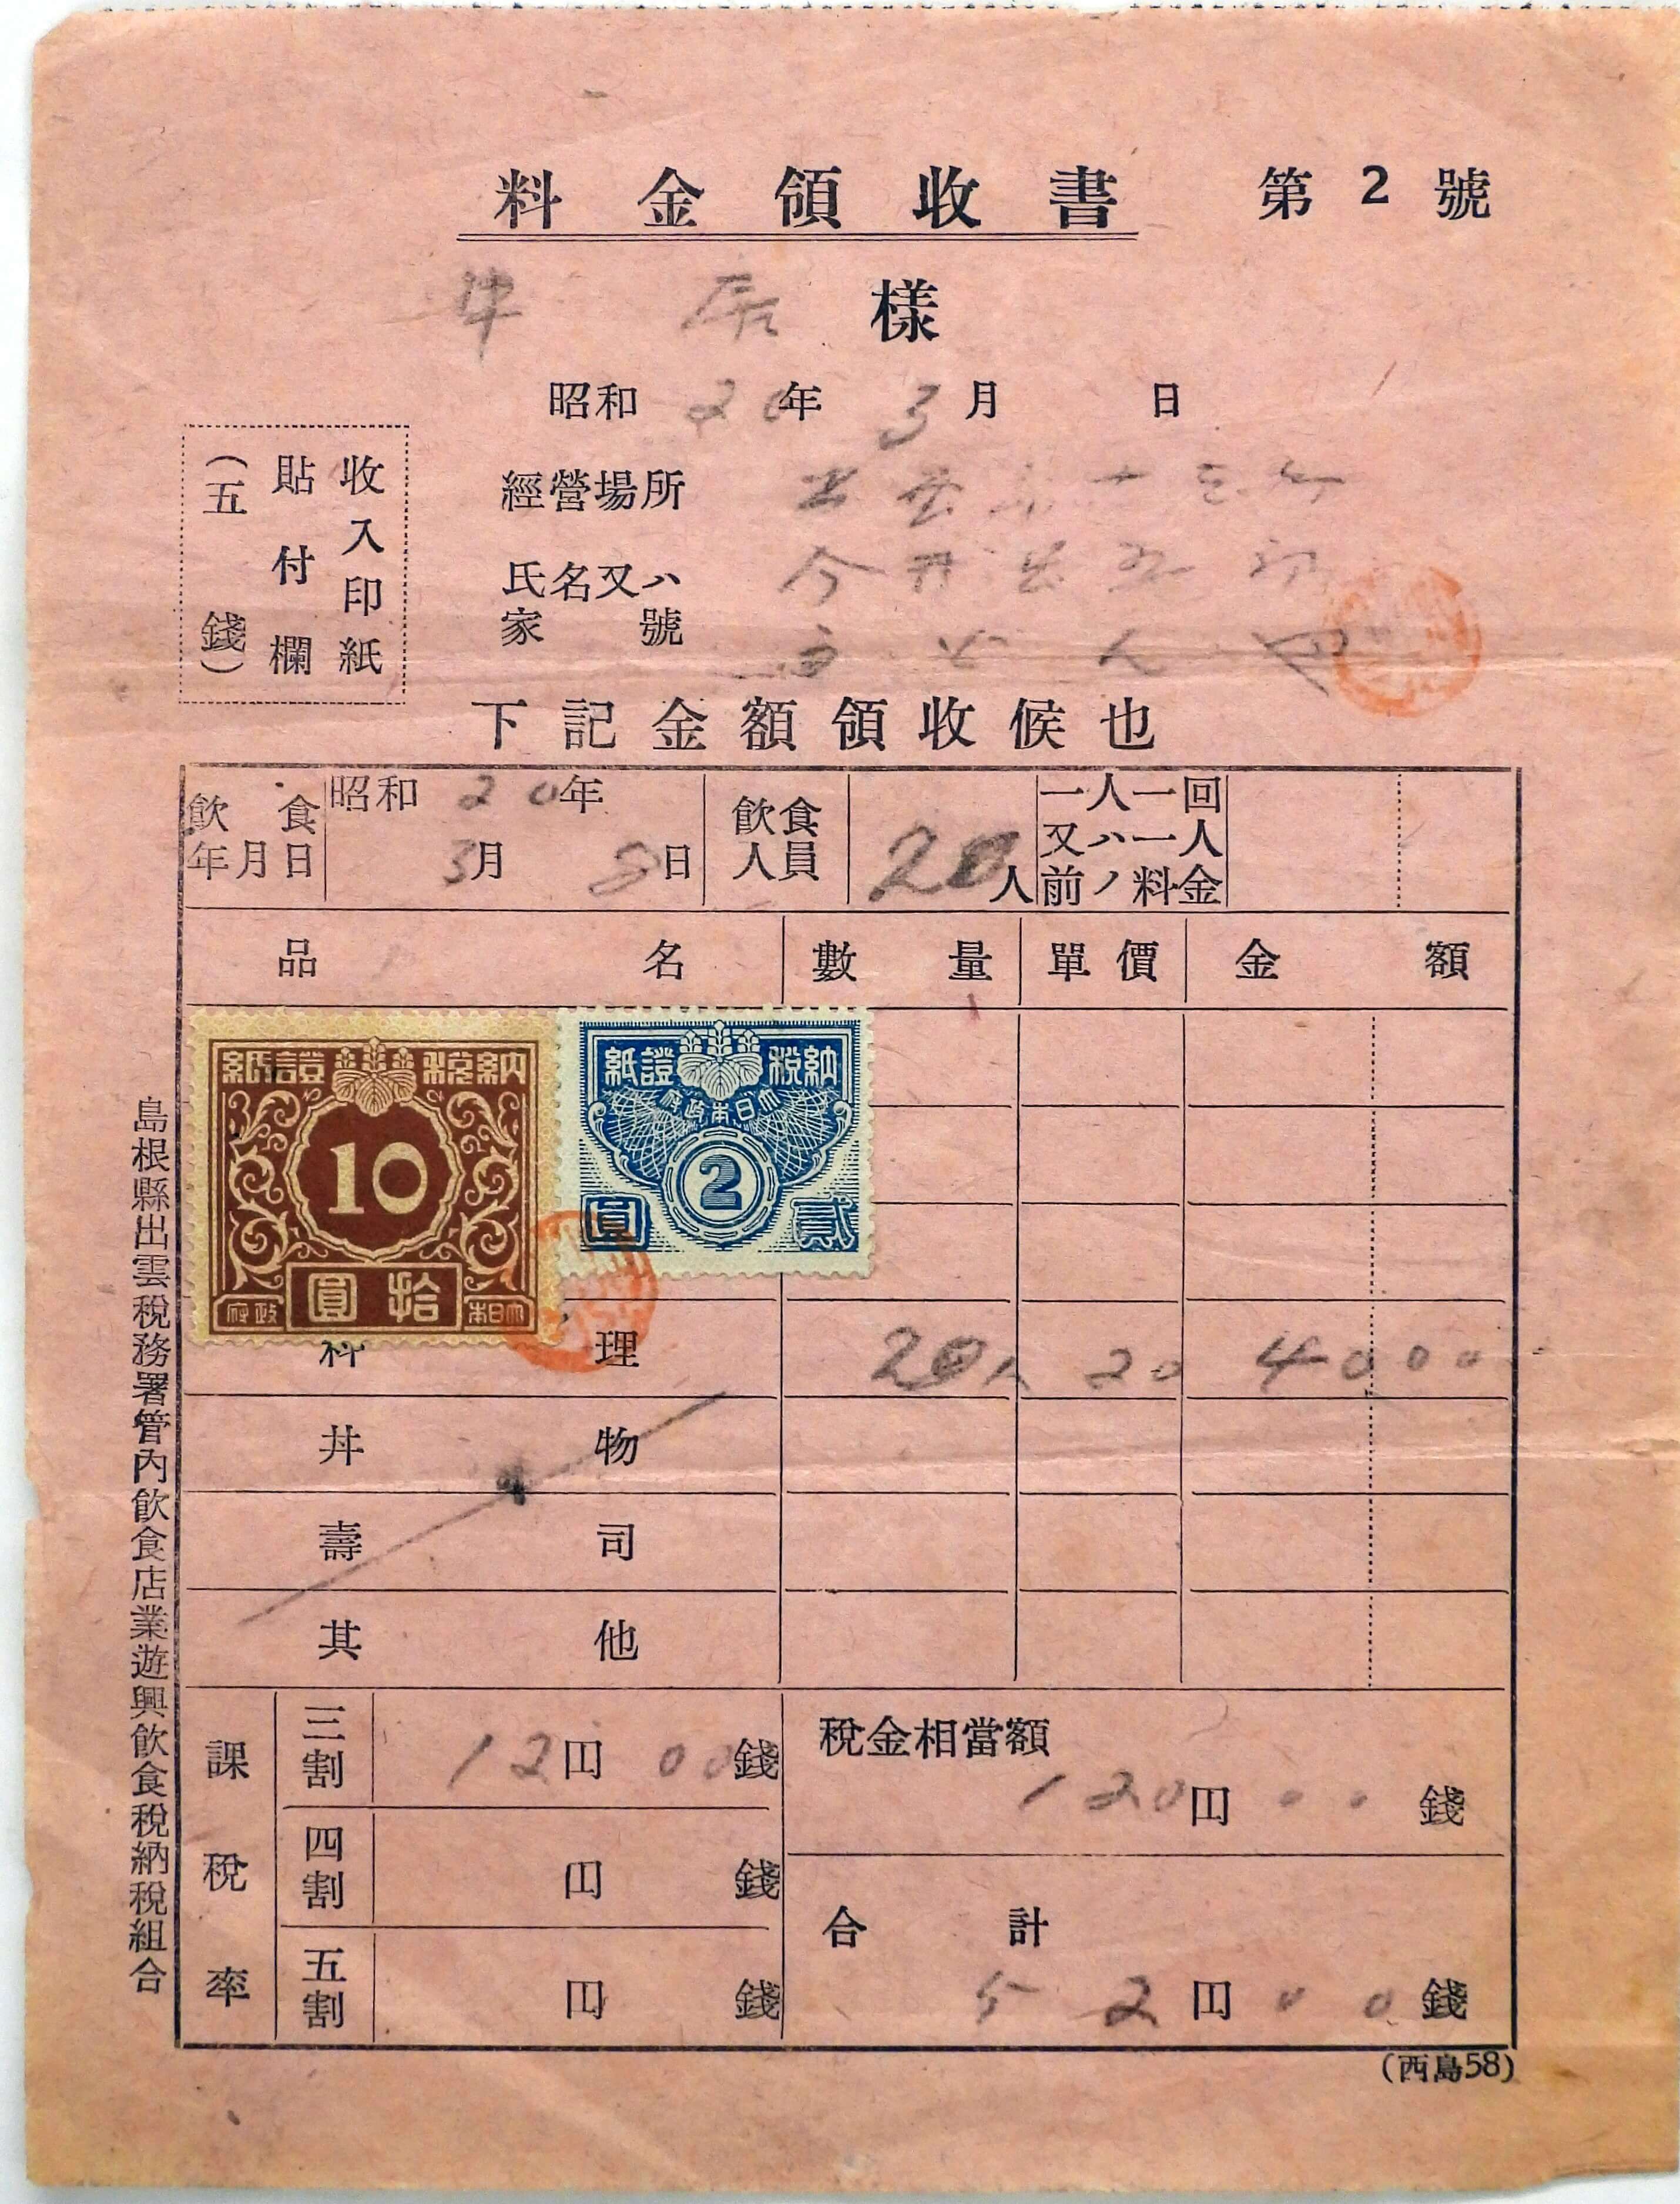 料金領收書 第2號
様
昭和20年3月 日
經營場所
氏名又ハ家號 今井
收入印紙
貼付欄
(五錢)
下記金額領收候也
飲食年月日 昭和20年3月8日 飲食人員 20人 一人一回又ハ一人前ノ料金
品名 數量 單價 金額
納税證紙
10
拾圓
大日本政府
納税證紙
大日本政府
2
貳圓
料理 20人 20 4000
丼物
壽司
其他
課税率
三割 12円00錢
四割 円 錢
五割 円 錢
税金相當額
120円00錢
合計
52円00錢
島根縣出雲税務署管内飲食店業遊興飲食税納税組合
(西島58)